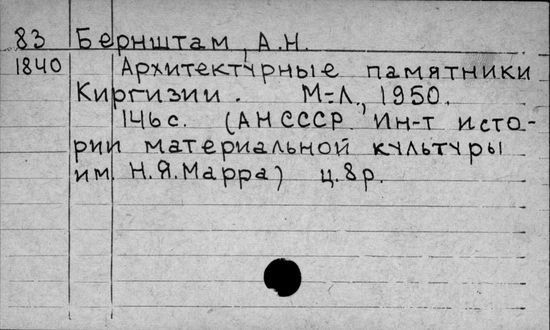 83 Бернштам, А.Н.
1840 Архитектурные памятники
Киргизии. М-Л., 1950.
146 с. (АН СССР. Ин-т исто-
рии материальной культуры
им. Н.Я.Марра) ц.8р.